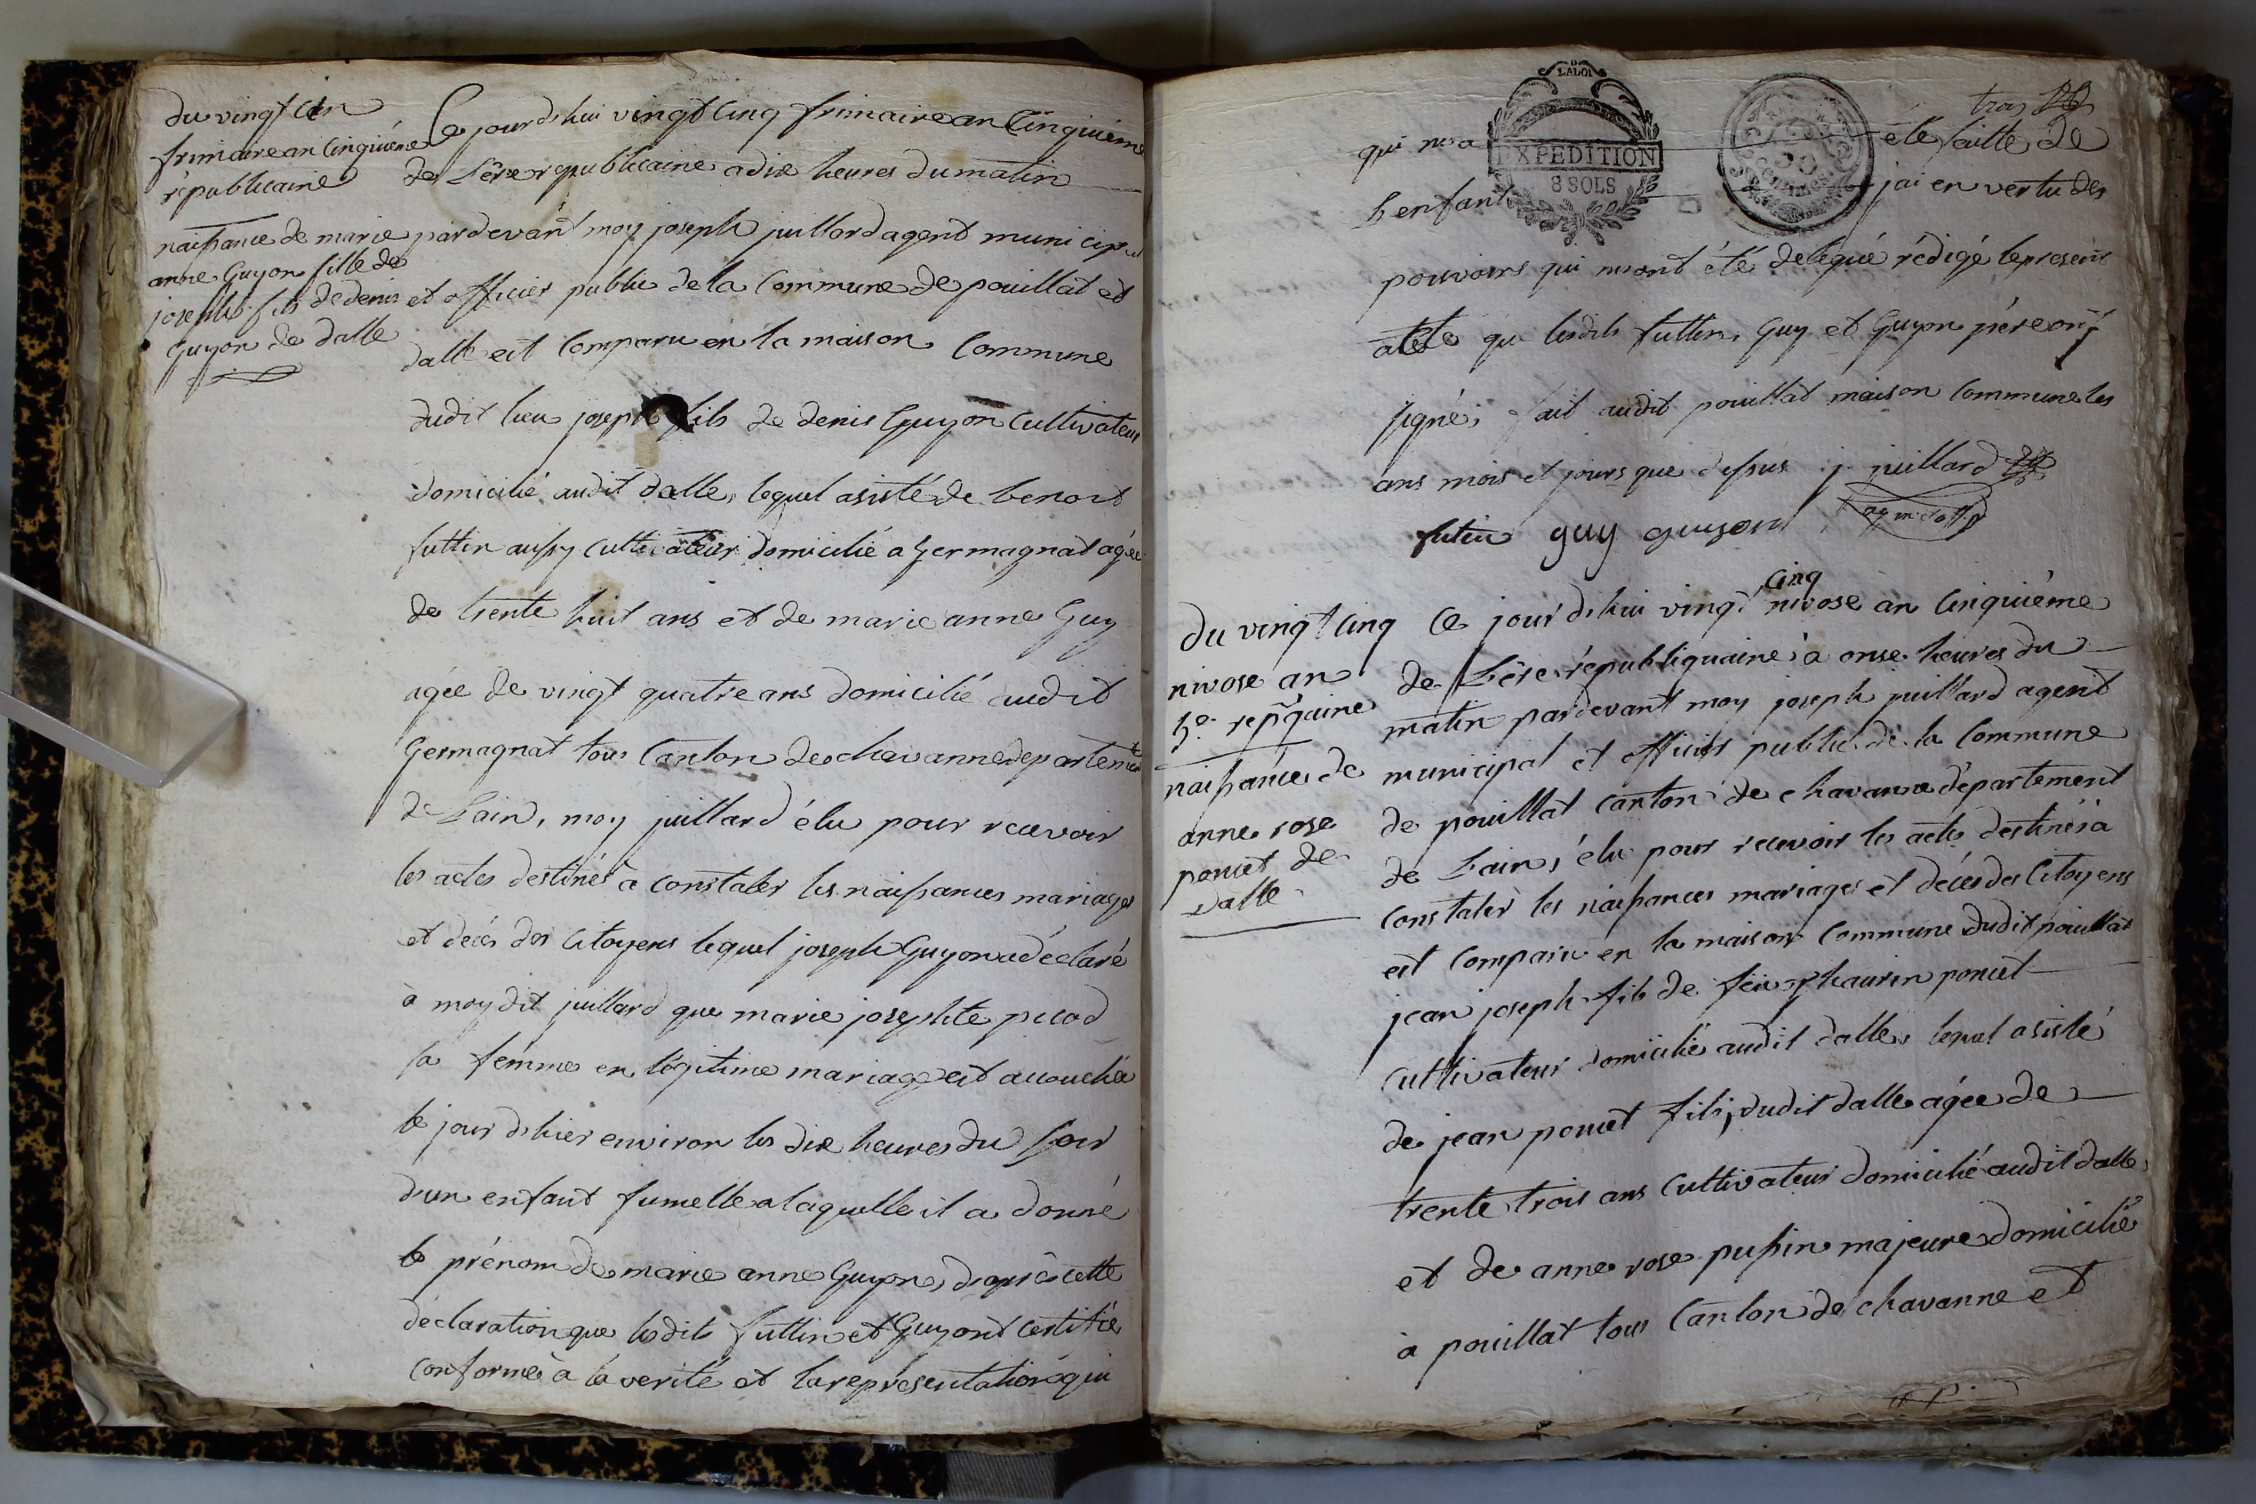 du vingt cin
frimaire an cinquième
républicaine
naissance de marie
anne Guyon fille de
joseph fils de denis
Guyon de dalle
Ce jourd'hui vingt cinq frimaire an cinquième
de L'ère republicaine a dix heures du matin
pardevant moy joseph juillard agent municipal
et officier public de la Commune de pouillat et
dalle est comparu en la maison Commune
dudit lieu joseph fils de denis Guyon cultivateur
domicilié audit dalle, lequel asisté de benoit
futtin aussy cultivateur domicilié a Germagnat agée
de trente huit ans et de marie anne Guy
agée de vingt quatre ans domicilié audit
Germagnat tous Canton de chavanne departement
de L'ain, moy juillard élu pour recevoir
les actes destinés à constater les naissances mariages
et decés des citoyens lequel joseph Guyon a déclaré
à moy dit juillard que marie josephte picod
sa femme en légitime mariage est accouchée
le jour d'hier environ les dix heures du soir
d'un enfant fumelle a laquelle il a donné
le prénom de marie anne Guyon, d'après cette
déclaration que lesdits futtin et Guy ont certifié
conforme à la verité et la représentation qui
trois
L A LOI
EXPEDITION
8 SOLS
qui m'a été faitte de
L'enfant j'ai en vertu des
pouvoirs qui m'ont été delegué rédigé le present
acte que lesdits futtin, Guy et Guyon père ont
signé, fait audit pouillat maison commune les
ans mois et jours que dessus j. juillard
futin guy guyon
ag mcal
du vingt cinq
nivose an
5e. repquaine
naissance de
anne rose
poncet de
dalle
cinq
Ce jour d'hui vingt nivose an cinquième
de L'ère républiquaine à onse heures du
matin pardevant moy joseph juillard agent
municipal et officier public de la Commune
de pouillat canton de chavanne département
de L'ain, élu pour recevoir les actes destinés à
constater les naissances mariages et décés des Citoyens
est comparu en la maison commune dudit pouillat
jean joseph fils de feu thaurin poncet
cultivateur domicilié audit dalle, lequel asisté
de jean poncet fils, dudit dalle agée de
trente trois ans cultivateur domicilié audit dalle,
et de anne rose pussin majeure domicilié
à pouillat tous Canton de chavanne et